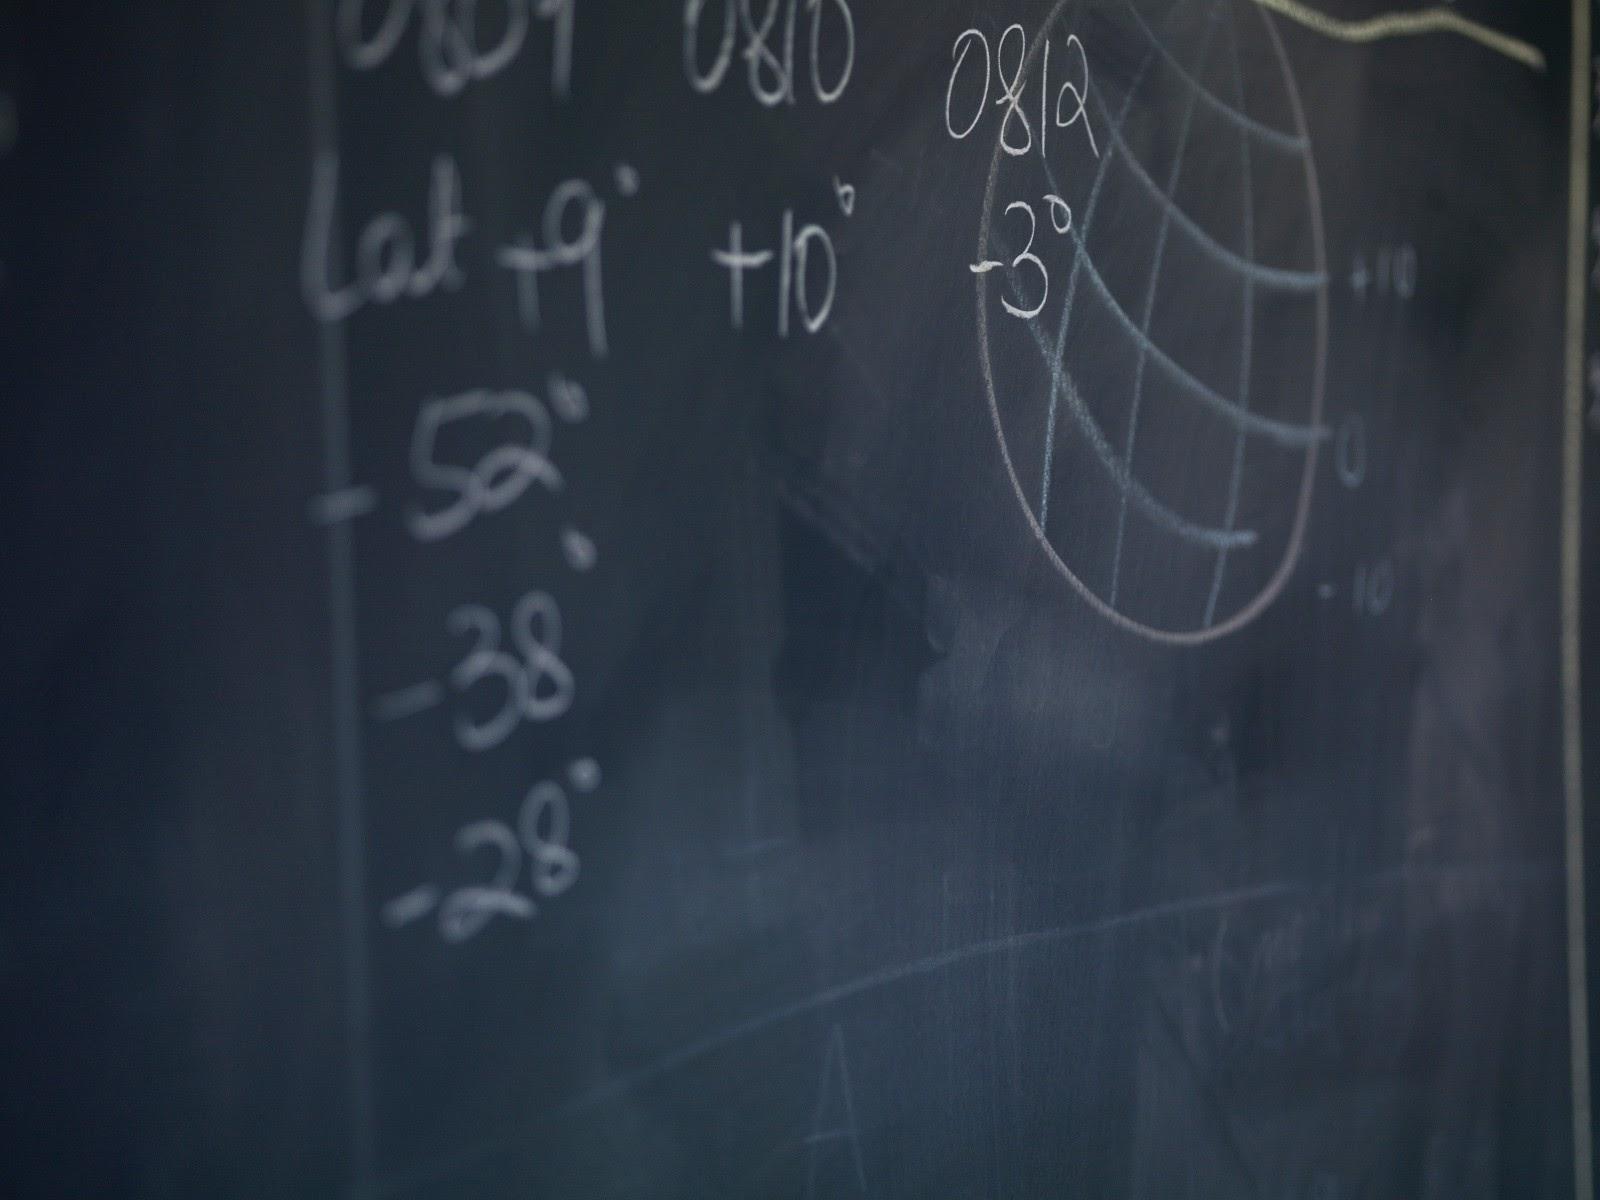 0809 0810 0812
Lat +9° +10° -3°
-52°
-38°
-28°
+10
0
-10
A